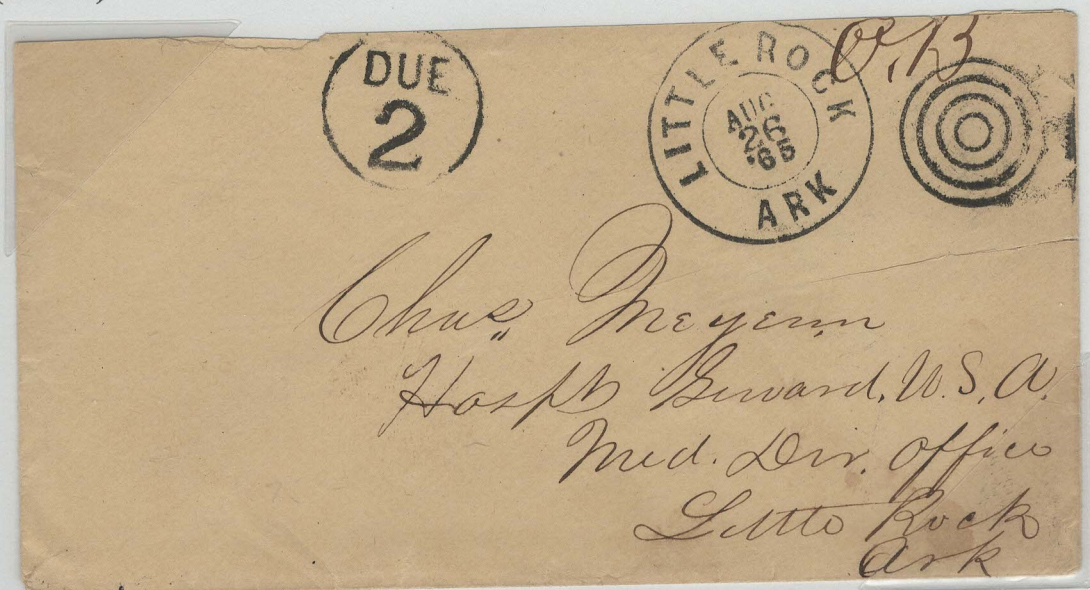 DUE
2
LITTLE ROCK
ARK
AUG
26
'65
O.B
Chas. Meyenn
Hospt Steward, U.S.A.
Med. Dir. Office
Little Rock
Ark